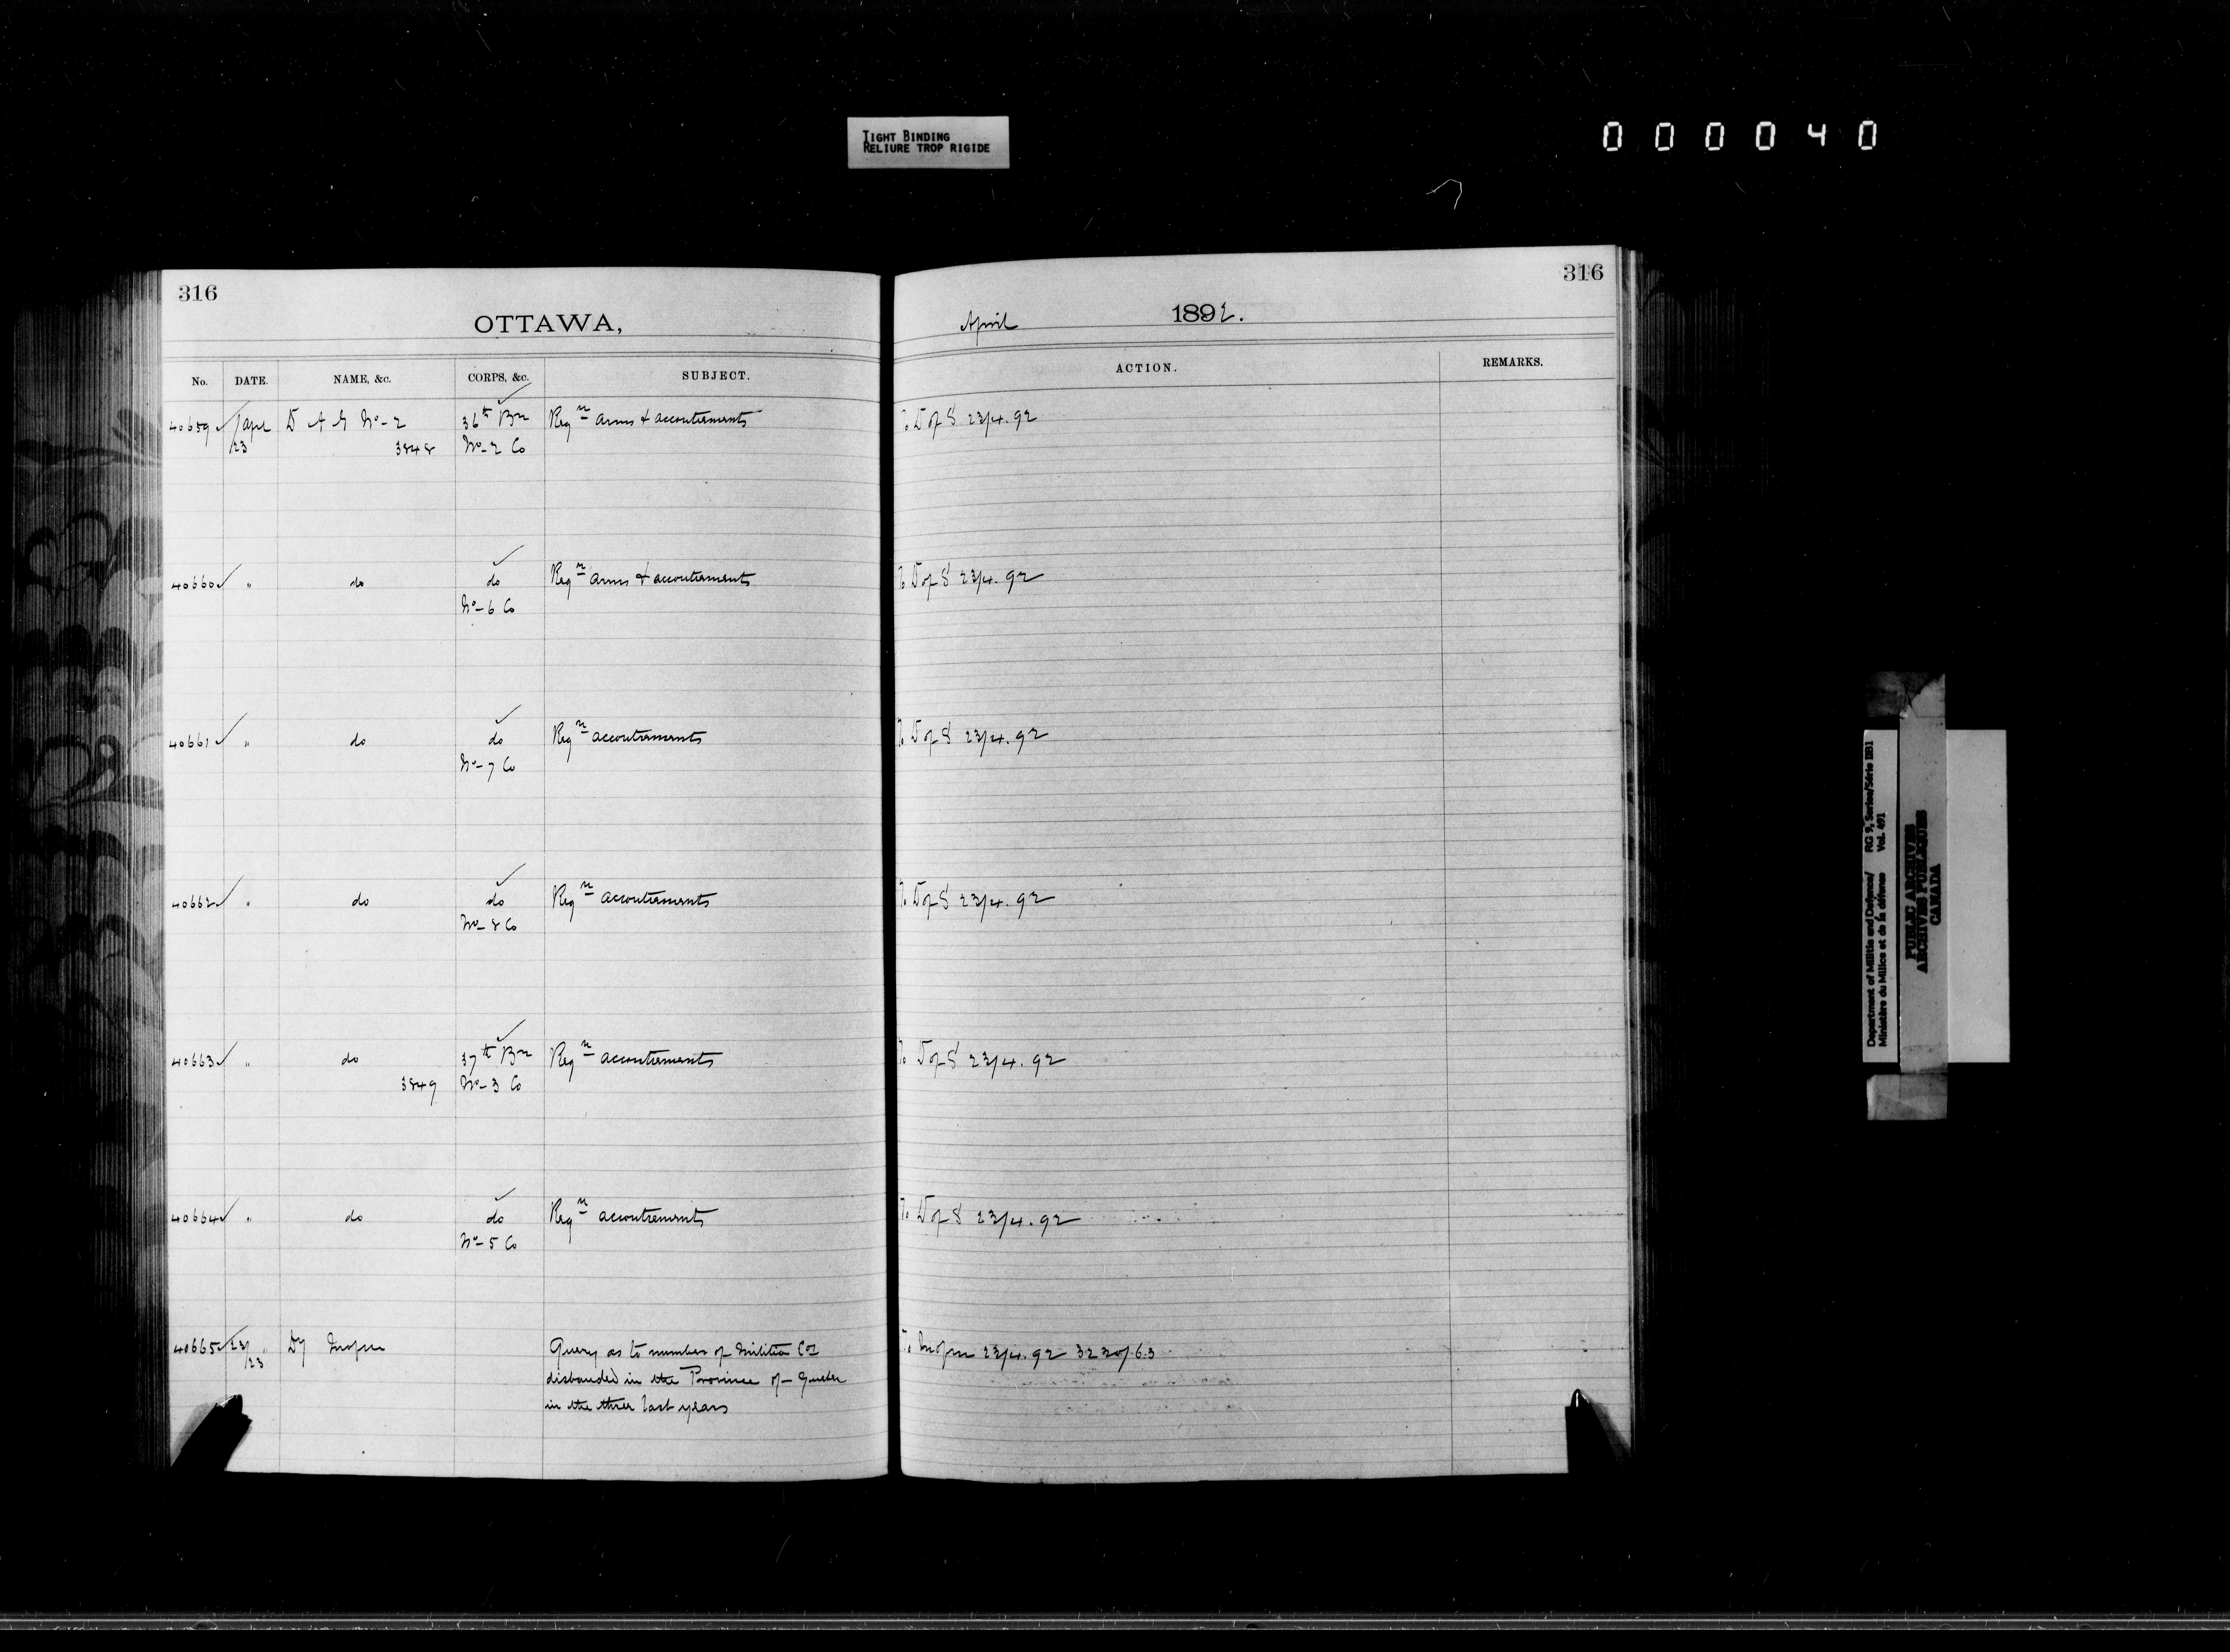 TIGHT BINDING
RELIURE TROP RIGIDE
000040
316
OTTAWA,
No. DATE. NAME, &c. CORPS, &c. SUBJECT.
40659 Apl D A G No-2 36th Bn Reqn arms & accoutrements
/23 3848 No-2 Co
40660 " do do Reqn arms & accoutrements
No-6 Co
40661 " do do Reqn accoutrements
No-7 Co
40662 " do do Reqn accoutrements
No-8 Co
40663 " do 37th Bn Reqn accoutrements
3849 No-3 Co
40664 " do do Reqn accoutrements
No-5 Co
40665 23/ Dy Query as to number of Militia Cos
/23 disbanded in the Province of Quebec
in the three last years
316
April 1892.
ACTION. REMARKS.
To D of S 23/4.92
To D of S 23/4.92
To D of S 23/4.92
To D of S 23/4.92
To D of S 23/4.92
To D of S 23/4.92
To 23/4.92
Department of Militia and Defence/ RG 9, Series/Série IIB1
Ministère du Milice et de la défense Vol. 491
PUBLIC ARCHIVES
ARCHIVES PUBLIQUES
CANADA